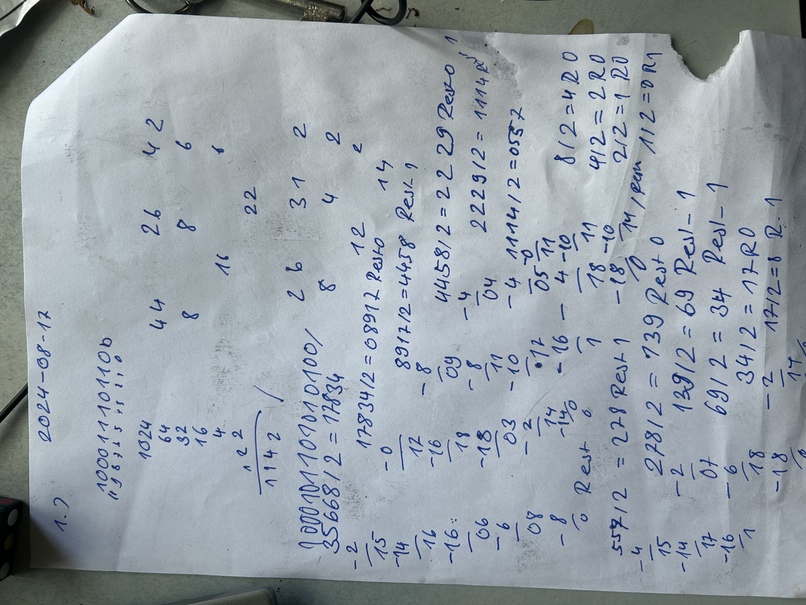 2024-08-17
1.)
10001110110b
1024
64
32
16
4
2
1142
44 26 42
8 8 6
16 6
22
1000101101010100
26 31 2
8 4 2
12 2
14
35668/2 = 17834
-2
15
-14
16
-16
06
-6
08
-8
0 Rest 0
17834/2 = 08917 Rest 0
-0
17
-16
18
-18
03
-2
14
-14
0
8917/2 = 4458 Rest 1
-8
09
-8
11
-10
17
-16
1
4458/2 = 2229 Rest 0
-4
04
-4
05
-4
18
-18
0
2229/2 = 1114 Rest 1
1114/2 = 0557
-0
11
-10
11
-10
14
8/2 = 4 R0
4/2 = 2 R0
2/2 = 1 R0
1/2 = 0 R1
557/2 = 278 Rest 1
-4
15
-14
17
-16
1
278/2 = 139 Rest 0
-2
07
-6
18
-18
139/2 = 69 Rest 1
69/2 = 34 Rest 1
34/2 = 17 R0
-2
14
17/2 = 8 R. 1